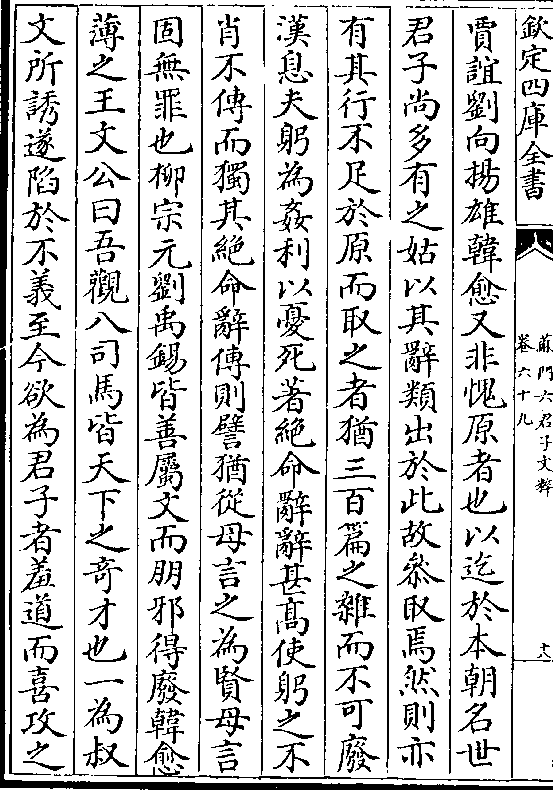 欽定四庫全書
蘇門六君子文粹
卷六十九
十六
賈誼劉向揚雄韓愈又非愧原者也以迄於本朝名世
君子尚多有之姑以其辭類出於此故叅取焉然則亦
有其行不足於原而取之者猶三百篇之雜而不可廢
漢息夫躬為姦利以憂死著絶命辭辭甚髙使躬之不
肖不傳而獨其絶命辭傳則譬猶從母言之為賢母言
固無罪也柳宗元劉禹錫皆善屬文而朋邪得廢韓愈
薄之王文公曰吾觀八司馬皆天下之竒才也一為叔
文所誘遂陷於不義至今欲為君子者羞道而喜攻之